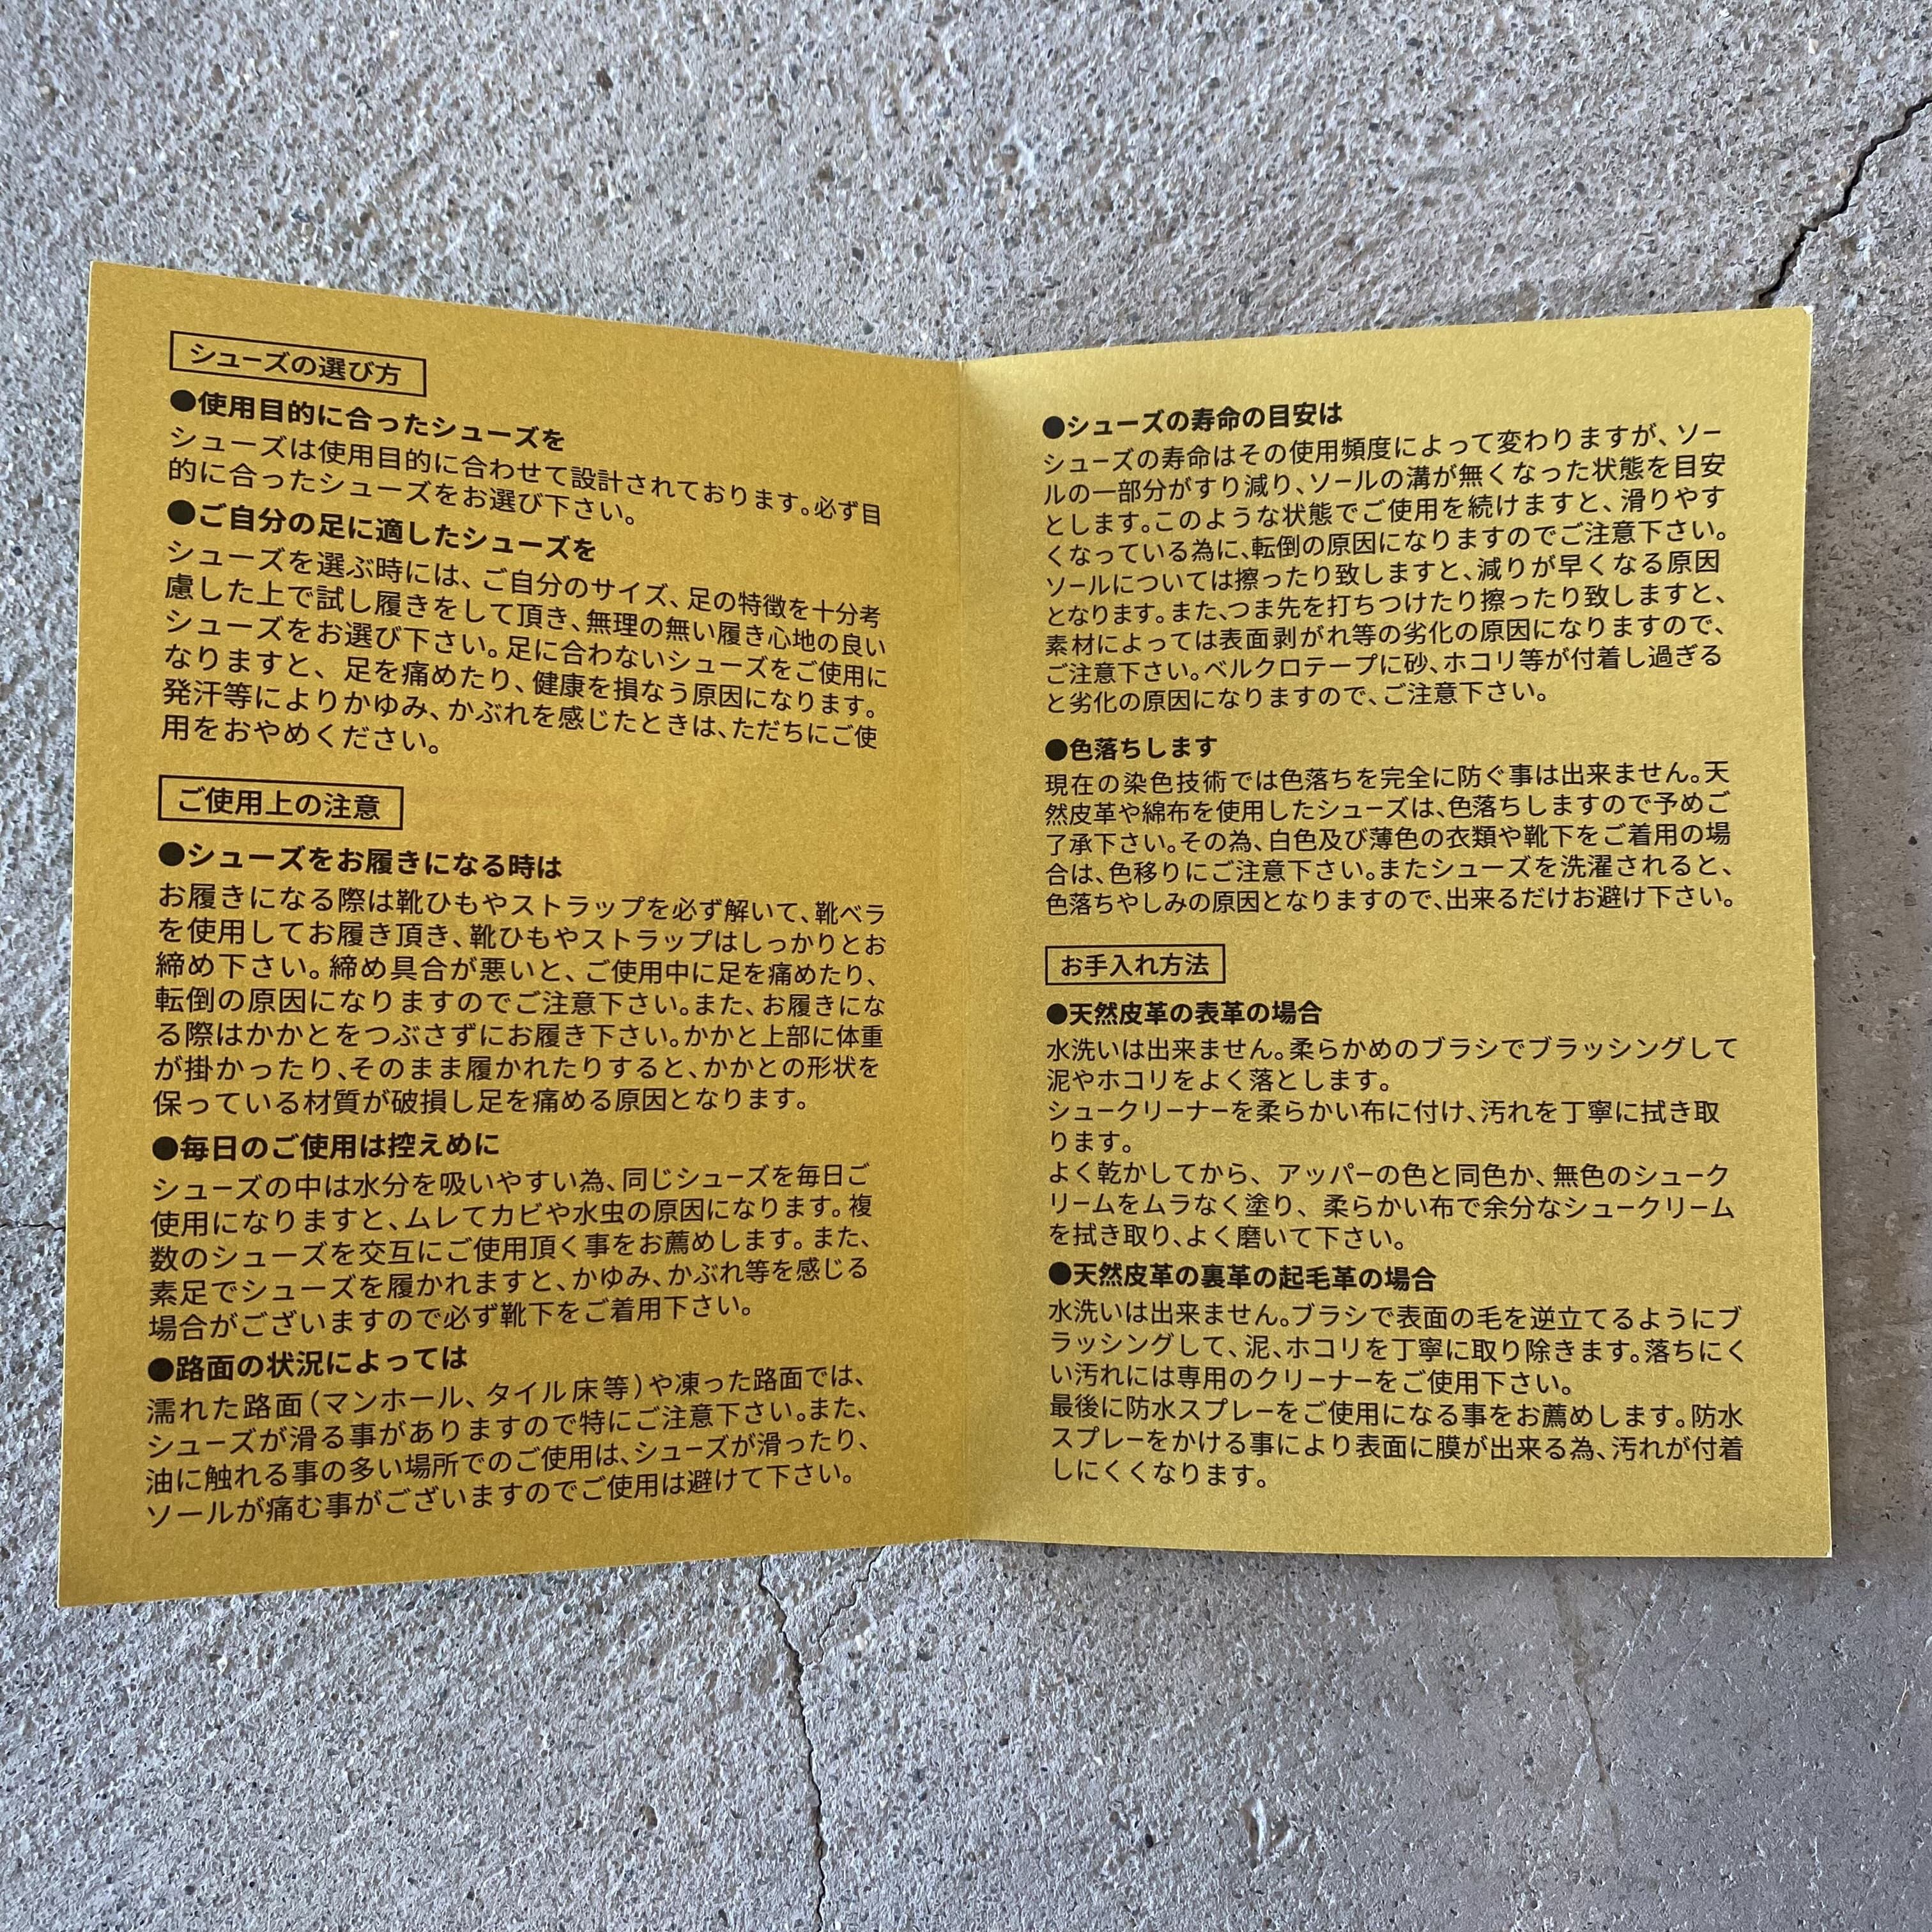 シューズの選び方
●使用目的に合ったシューズを
シューズは使用目的に合わせて設計されております。必ず目
的に合ったシューズをお選び下さい。
●ご自分の足に適したシューズを
シューズを選ぶ時には、ご自分のサイズ、足の特徴を十分考
慮した上で試し履きをして頂き、無理の無い履き心地の良い
シューズをお選び下さい。足に合わないシューズをご使用に
なりますと、足を痛めたり、健康を損なう原因になります。
発汗等によりかゆみ、かぶれを感じたときは、ただちにご使
用をおやめください。
ご使用上の注意
●シューズをお履きになる時は
お履きになる際は靴ひもやストラップを必ず解いて、靴ベラ
を使用してお履き頂き、靴ひもやストラップはしっかりとお
締め下さい。締め具合が悪いと、ご使用中に足を痛めたり、
転倒の原因になりますのでご注意下さい。また、お履きにな
る際はかかとをつぶさずにお履き下さい。かかと上部に体重
が掛かったり、そのまま履かれたりすると、かかとの形状を
保っている材質が破損し足を痛める原因となります。
●毎日のご使用は控えめに
シューズの中は水分を吸いやすい為、同じシューズを毎日ご
使用になりますと、ムレてカビや水虫の原因になります。複
数のシューズを交互にご使用頂く事をお薦めします。また、
素足でシューズを履かれますと、かゆみ、かぶれ等を感じる
場合がございますので必ず靴下をご着用下さい。
●路面の状況によっては
濡れた路面(マンホール、タイル床等)や凍った路面では、
シューズが滑る事がありますので特にご注意下さい。また、
油に触れる事の多い場所でのご使用は、シューズが滑ったり、
ソールが痛む事がございますのでご使用は避けて下さい。
●シューズの寿命の目安は
シューズの寿命はその使用頻度によって変わりますが、ソー
ルの一部分がすり減り、ソールの溝が無くなった状態を目安
とします。このような状態でご使用を続けますと、滑りやす
くなっている為に、転倒の原因になりますのでご注意下さい。
ソールについては擦ったり致しますと、減りが早くなる原因
となります。また、つま先を打ちつけたり擦ったり致しますと、
素材によっては表面剥がれ等の劣化の原因になりますので、
ご注意下さい。ベルクロテープに砂、ホコリ等が付着し過ぎる
と劣化の原因になりますので、ご注意下さい。
●色落ちします
現在の染色技術では色落ちを完全に防ぐ事は出来ません。天
然皮革や綿布を使用したシューズは、色落ちしますので予めご
了承下さい。その為、白色及び薄色の衣類や靴下をご着用の場
合は、色移りにご注意下さい。またシューズを洗濯されると、
色落ちやしみの原因となりますので、出来るだけお避け下さい。
お手入れ方法
●天然皮革の表革の場合
水洗いは出来ません。柔らかめのブラシでブラッシングして
泥やホコリをよく落とします。
シュークリーナーを柔らかい布に付け、汚れを丁寧に拭き取
ります。
よく乾かしてから、アッパーの色と同色か、無色のシューク
リームをムラなく塗り、柔らかい布で余分なシュークリーム
を拭き取り、よく磨いて下さい。
●天然皮革の裏革の起毛革の場合
水洗いは出来ません。ブラシで表面の毛を逆立てるようにブ
ラッシングして、泥、ホコリを丁寧に取り除きます。落ちにく
い汚れには専用のクリーナーをご使用下さい。
最後に防水スプレーをご使用になる事をお薦めします。防水
スプレーをかける事により表面に膜が出来る為、汚れが付着
しにくくなります。